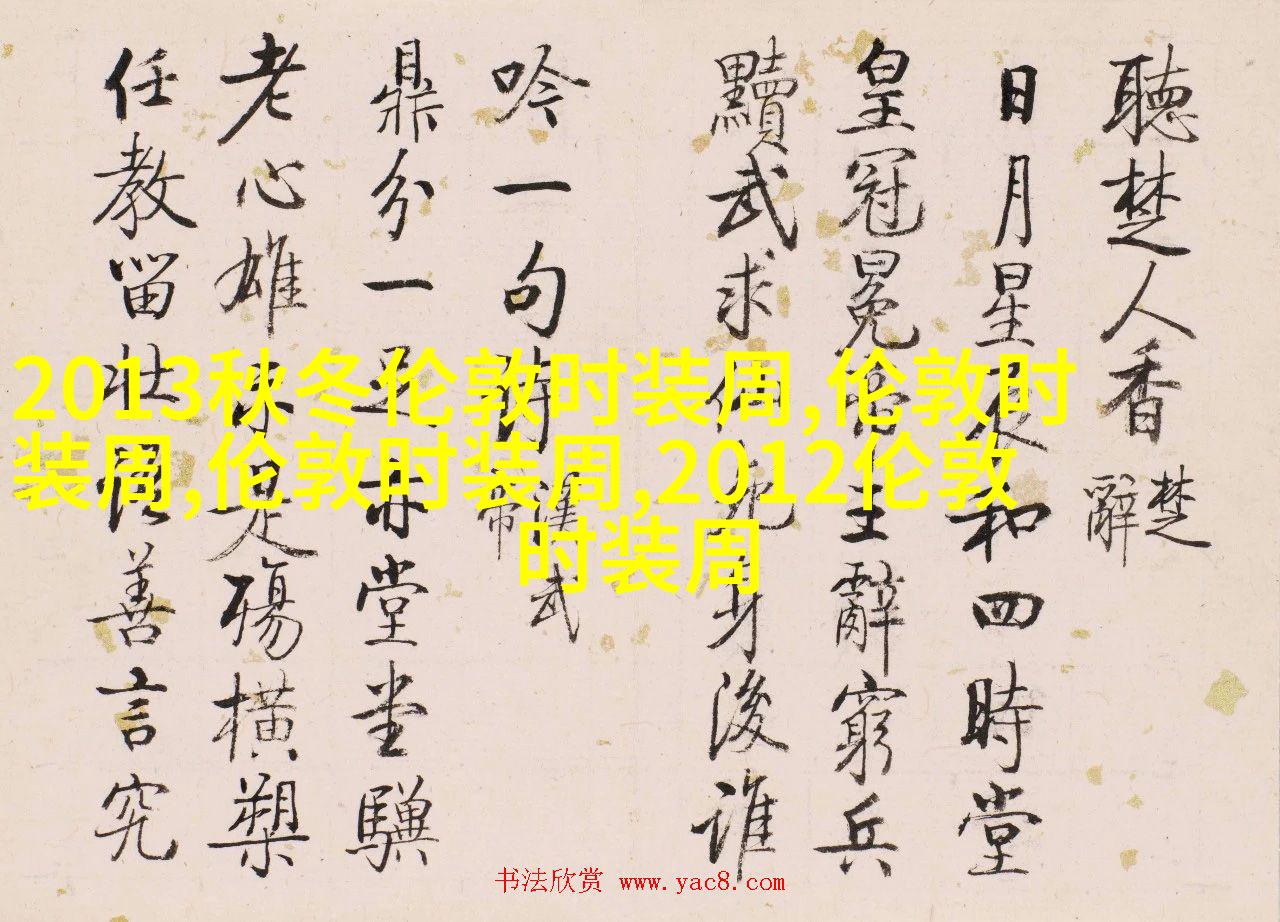 聽楚人香 楚辭
日月星辰和四時堂
皇冠冕主辭窮兵
黷武求仙身後誰
吟一句詩 漢武帝
鼎分一足亦堂堂驥
老心雄未是殤橫槊
任教留壯語善言究
2013秋冬伦敦时装周,伦敦时
装周,伦敦时装周,2012伦敦
时装周
书法欣赏 www.yac8.com